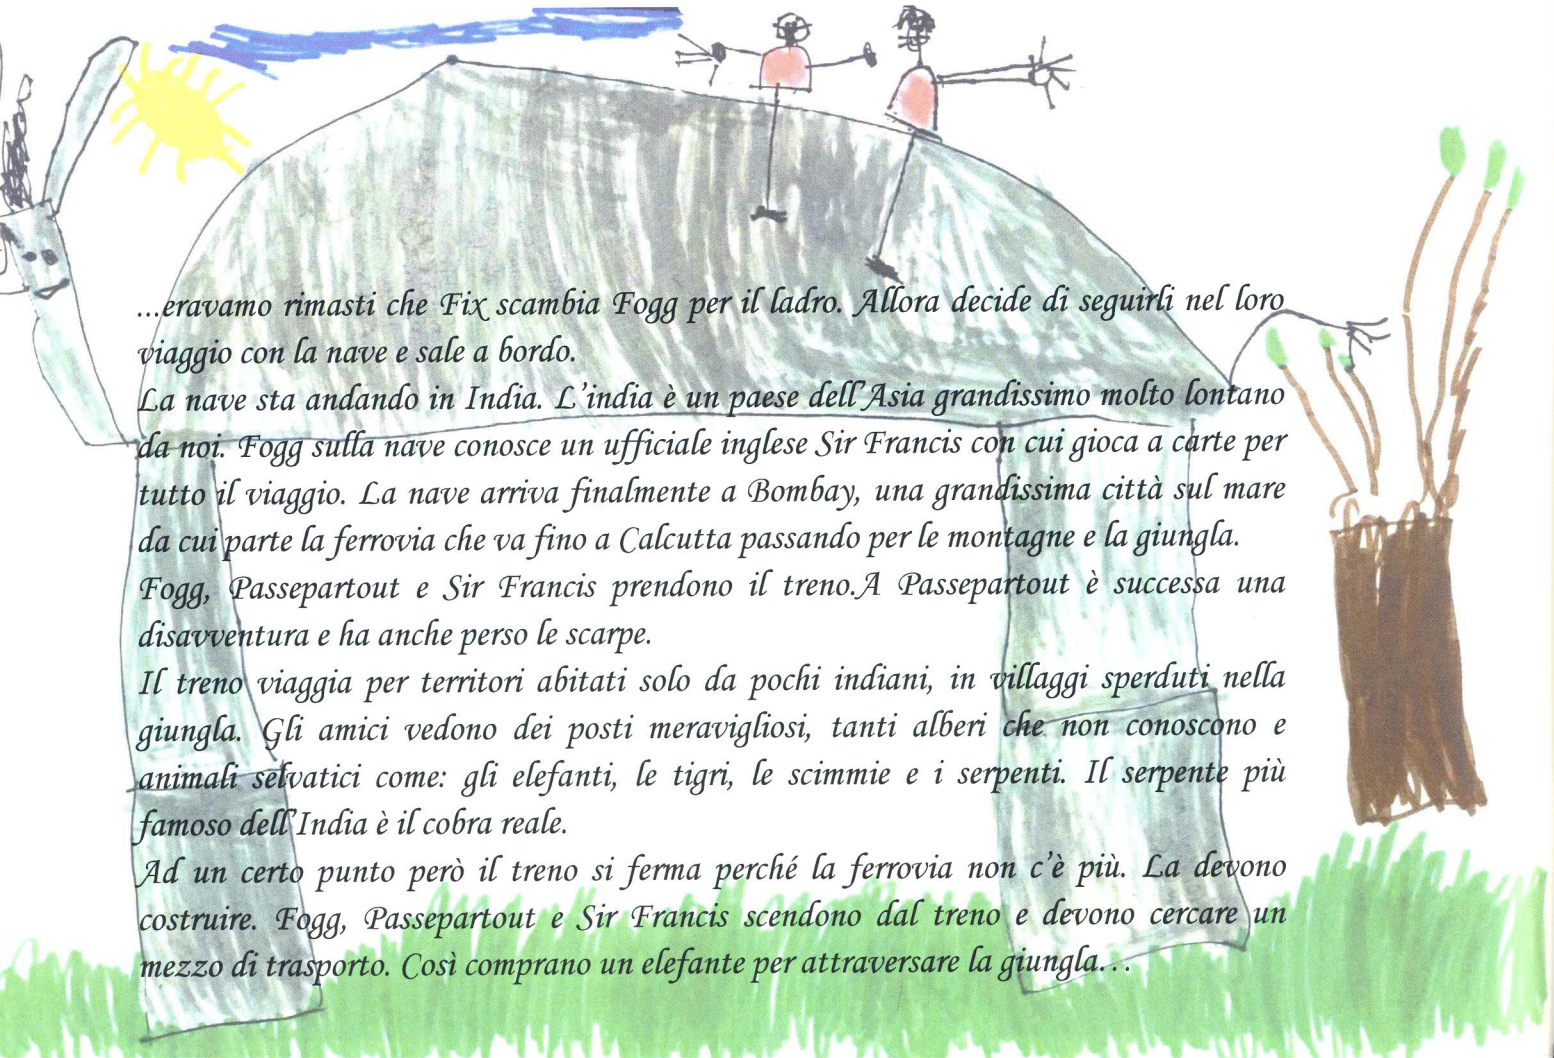 ...eravamo rimasti che Fix scambia Fogg per il ladro. Allora decide di seguirli nel loro
viaggio con la nave e sale a bordo.
La nave sta andando in India. L'india è un paese dell'Asia grandissimo molto lontano
da noi. Fogg sulla nave conosce un ufficiale inglese Sir Francis con cui gioca a carte per
tutto il viaggio. La nave arriva finalmente a Bombay, una grandissima città sul mare
da cui parte la ferrovia che va fino a Calcutta passando per le montagne e la giungla.
Fogg, Passepartout e Sir Francis prendono il treno.A Passepartout è successa una
disavventura e ha anche perso le scarpe.
Il treno viaggia per territori abitati solo da pochi indiani, in villaggi sperduti nella
giungla. Gli amici vedono dei posti meravigliosi, tanti alberi che non conoscono e
animali selvatici come: gli elefanti, le tigri, le scimmie e i serpenti. Il serpente più
famoso dell'India è il cobra reale.
Ad un certo punto però il treno si ferma perché la ferrovia non c'è più. La devono
costruire. Fogg, Passepartout e Sir Francis scendono dal treno e devono cercare un
mezzo di trasporto. Così comprano un elefante per attraversare la giungla...